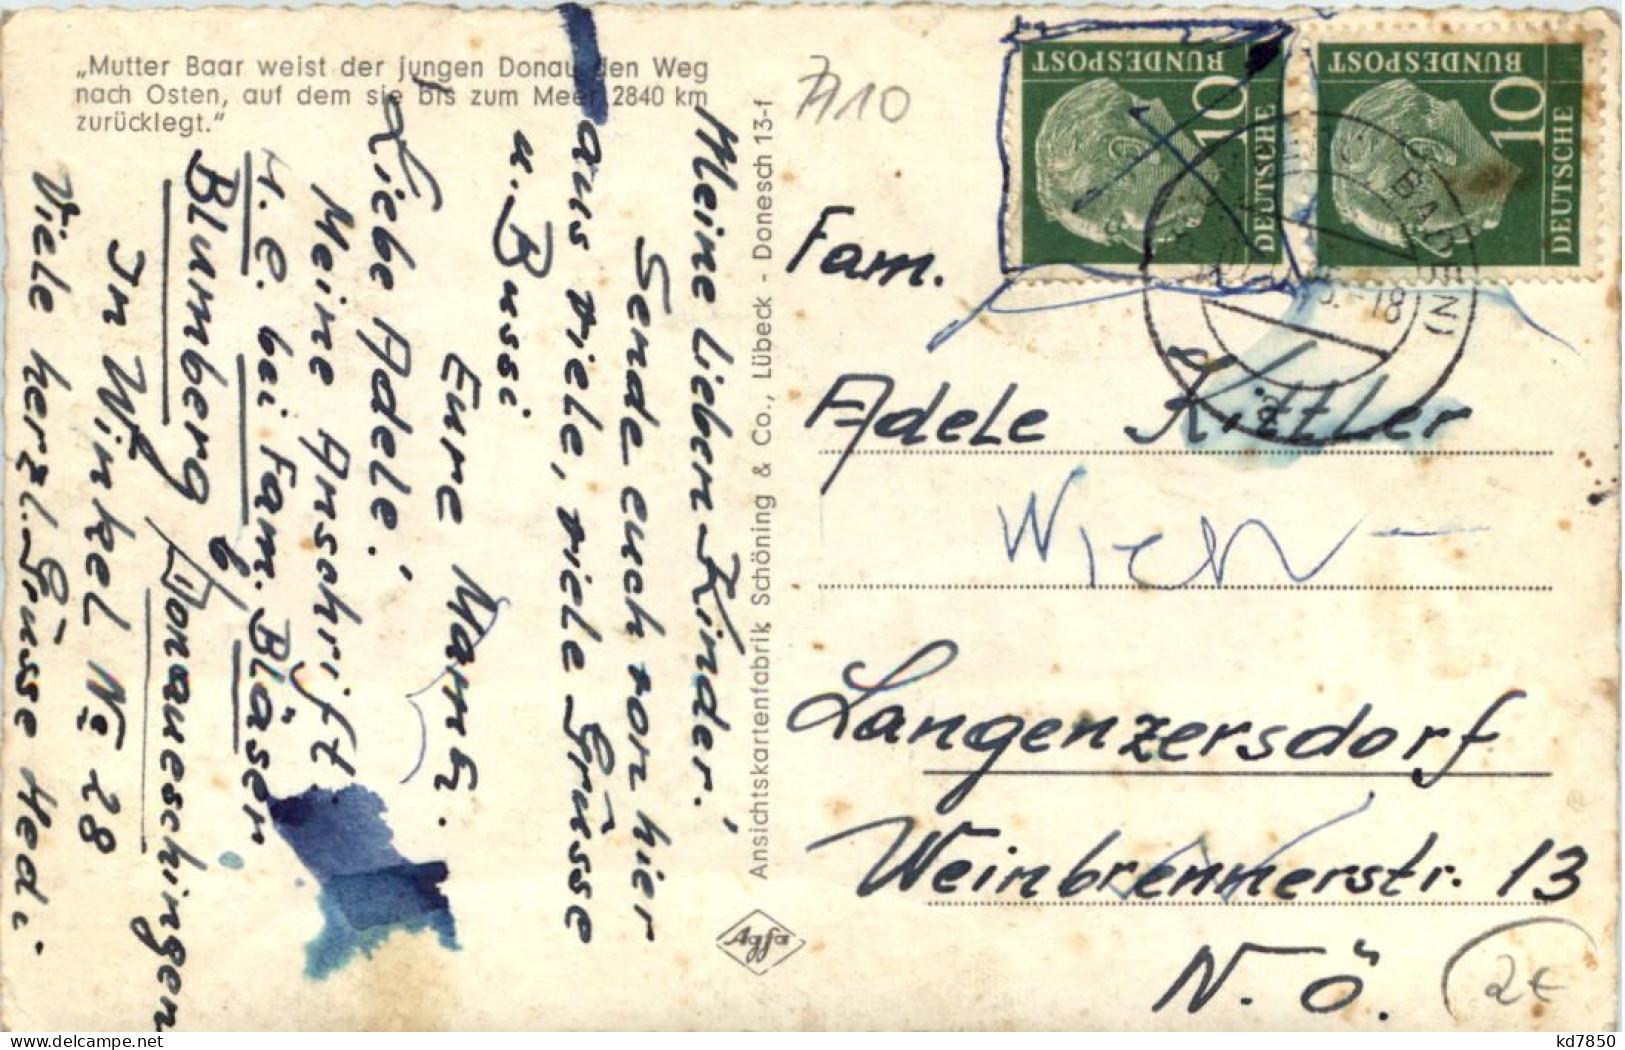 „Mutter Baar weist der jungen Donau den Weg
nach Osten, auf dem sie bis zum Meer 2840 km
zurücklegt.“
Meine Lieben Kinder!
Sende euch von hier
aus viele, viele Grüsse
u. Bussi
Eure Mama.
Liebe Adele!
Meine Anschrift
bei Fam. Bläser
Blumberg b/ Donaueschingen
In Winkel № 28
Viele herzl. Grüsse Hedi
Ansichtskartenfabrik Schöning & Co., Lübeck - Donesch 13-f
Agfa
10
DEUTSCHE
BUNDESPOST
10
DEUTSCHE
BUNDESPOST
-18
Fam.
Adele Kittler
Wien
Langenzersdorf
Weinbrennerstr. 13
N. Ö.
2€
kd7850